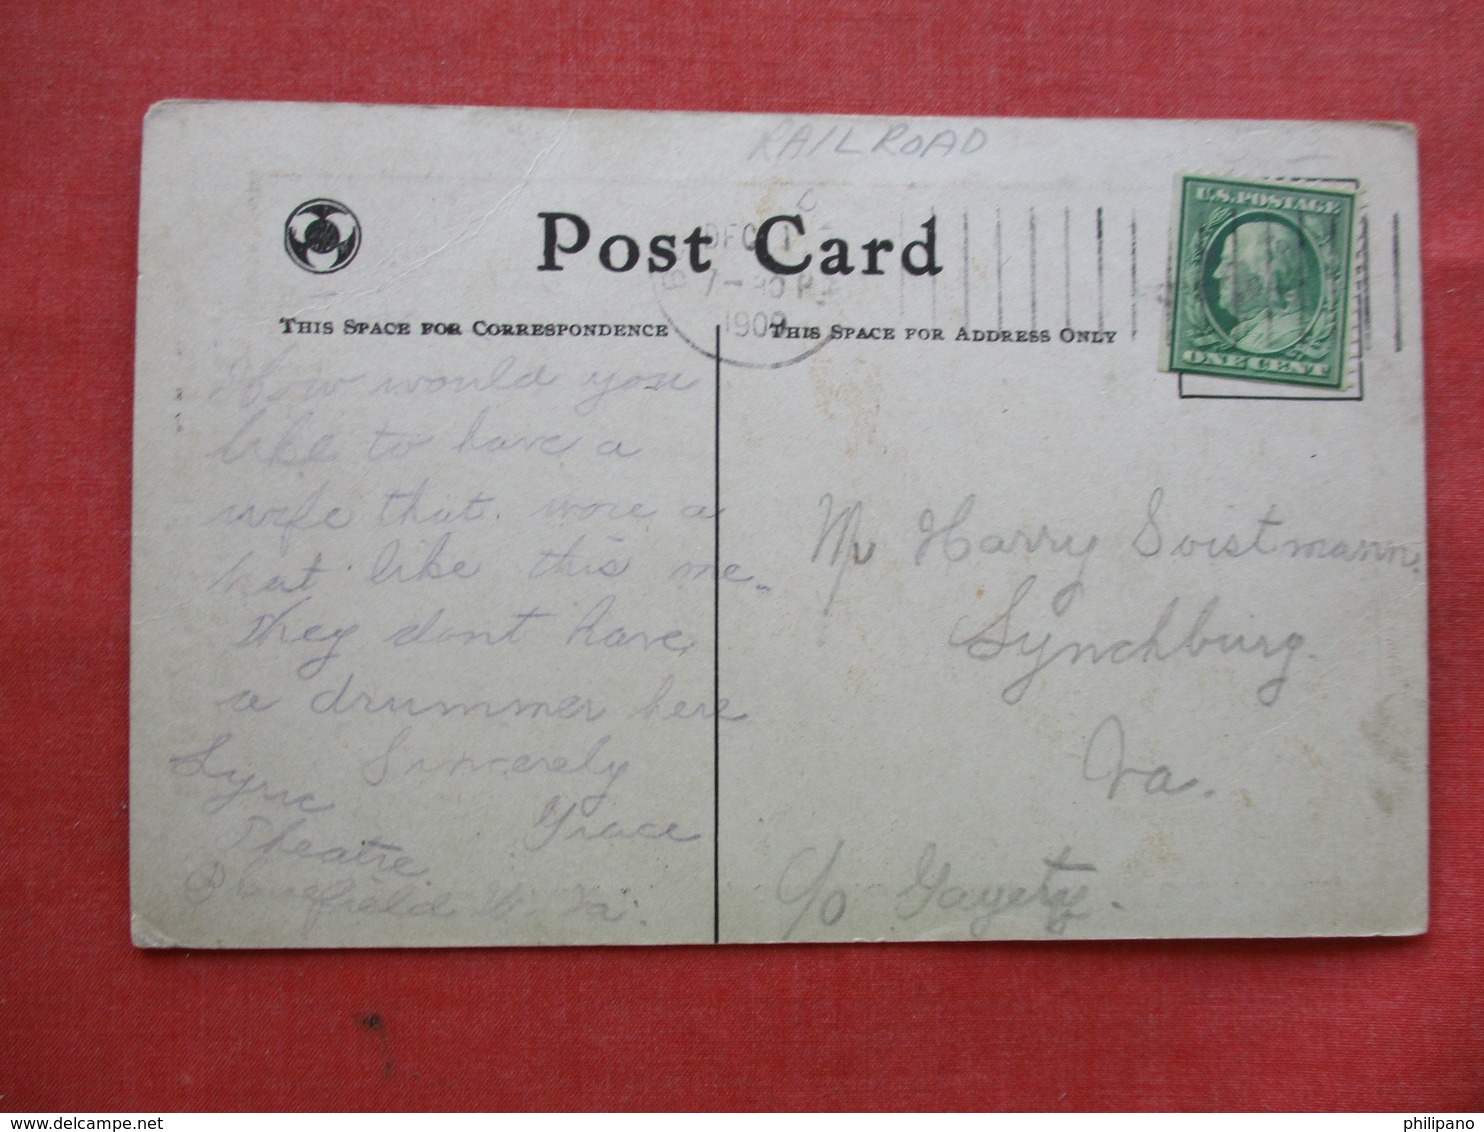 RAILROAD
Post Card
DEC 1
7-30 P
1909
U.S. POSTAGE
ONE CENT
THIS SPACE FOR CORRESPONDENCE
THIS SPACE FOR ADDRESS ONLY
How would you
like to have a
wife that wore a
hat like this one.
They dont have
a drummer here
Sincerely
Grace
Lyric
Theatre
Bluefield W. Va.
Mr Harry Soistmann.
Lynchburg.
Va.
c/o Gayety.
http://www.delcampe.net
philipano